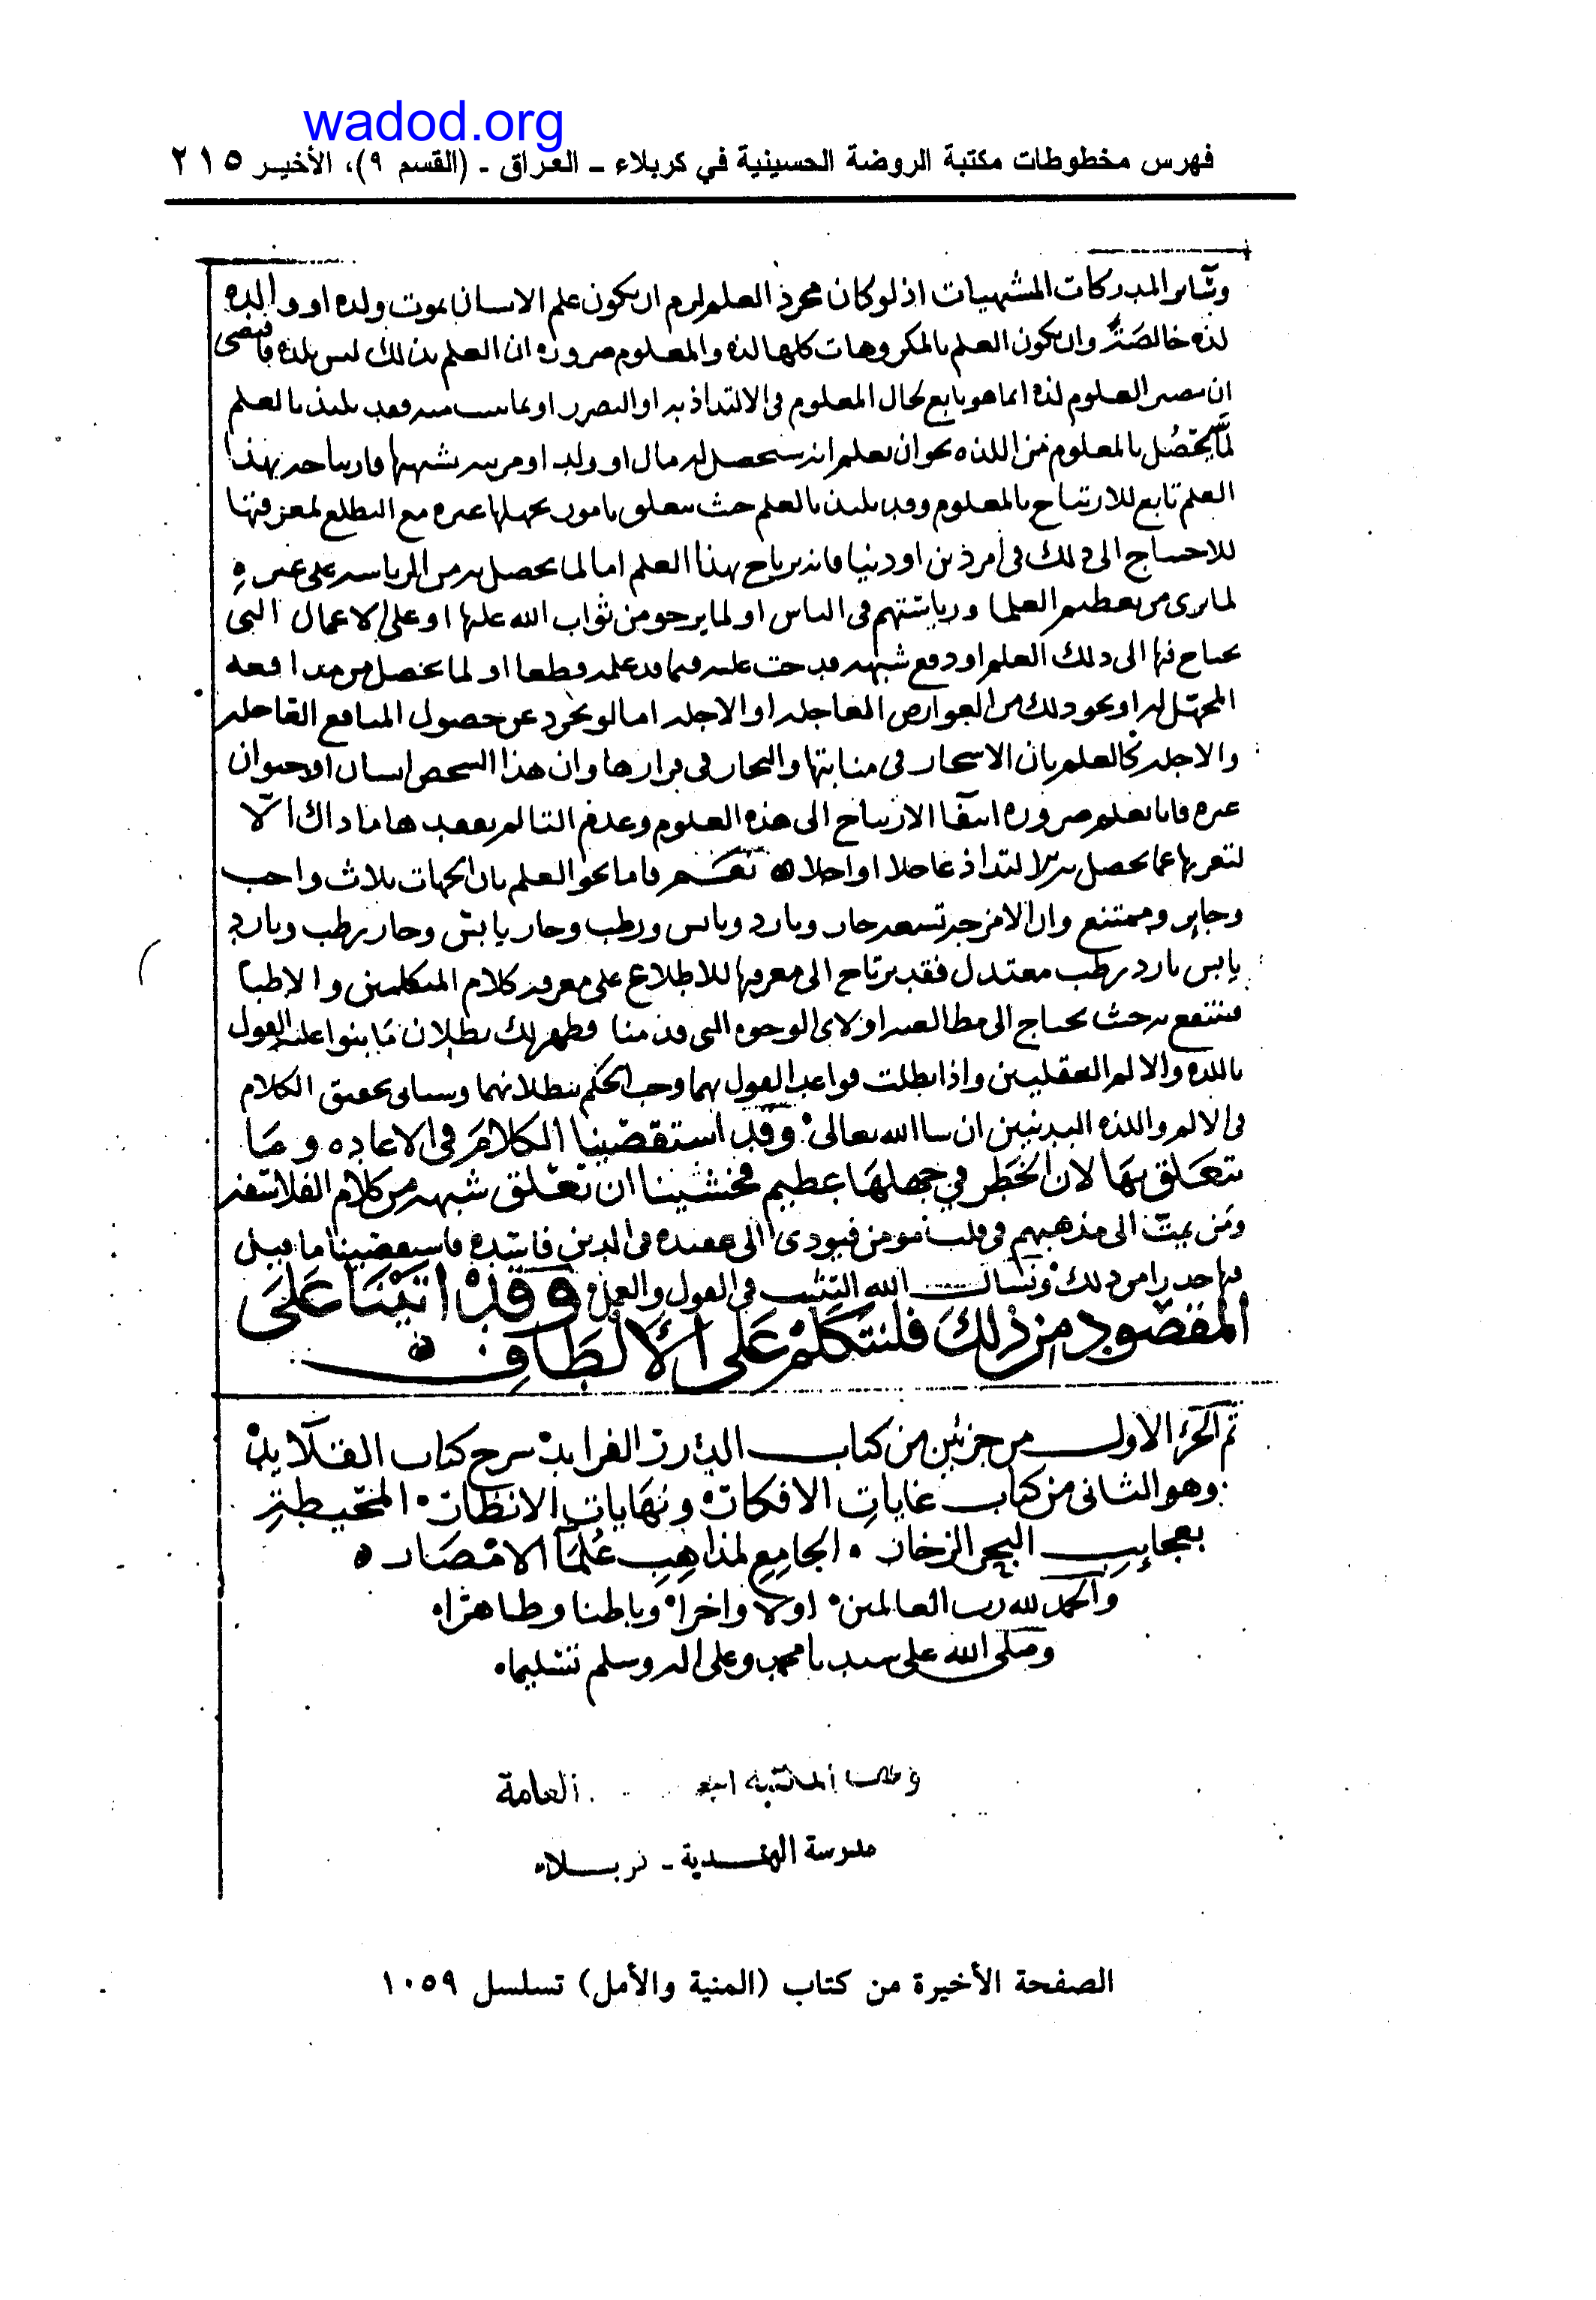 wadod.org
فهرس مخطوطات مكتبة الروضة الحسينية في كربلاء ـ العراق ـ (القسم ٩)، الأخير ٢١٥
وسائر المدركات المشهيات اذ لو كان مجرد العلم لزم ان يكون علم الانسان بموت ولده او والده
لذه خالصة وان يكون العلم بالمكروهات كلها لذه والمعلوم ضروره ان العلم بذلك ليس بلذه
ان العلوم لذه انما هو تابع لحال المعلوم في الالتذاذ به او التضرر او فقد يلتذ بالعلم
بالمعلوم من اللذه نحو ان يعلم انه سيحصل له مال او ولد او مرتبه يشتهيها فارتياحه بهذا
العلم تابع للارتياح بالمعلوم وقد يلتذ بالعلم حيث يتعلق بامور يجهلها غيره مع التطلع لمعرفتها
للاحتياج الى ذلك في امر دين او دنيا فانه يرتاح بهذا العلم اما لما يحصل به من الرياسه على غيره
لما يرى من تعظيم العلما ورياستهم في الناس او لما يرجو من ثواب الله عليها او على الاعمال التي
يحتاج فيها الى ذلك العلم او دفع شبهه قد علمه قطعا او لما يحصل من
او نحو ذلك من العوارض العاجله او الاجله اما لو تجرد عن حصول المنافع العاجله
والاجله كالعلم بان الاشجار في منابتها والبحار في قرارها وان هذا الشخص انسان او حيوان
غيره فانا نعلم ضروره انتفا الارتياح الى هذه العلوم وعدم التالم بفقدها وما ذاك الا
لتعريها عما يحصل به الالتذاذ عاجلا او اجلا ه نعم فاما نحو العلم بان الجهات ثلاث واجب
وجايز وممتنع وان الامزجه تسعه حار وبارد ويابس ورطب وحار يابس وحار رطب وبارد
يابس بارد رطب معتدل فقد يرتاح الى معرفتها للاطلاع على معرفه كلام المتكلمين والاطبا
فينتفع به حيث يحتاج الى او لاى الوجوه التى قدمنا فظهر لك بطلان ما بنوا عليه القول
باللذه والالم العقليين واذا بطلت قواعد القول بهما وجب الحكم ببطلانهما وسياتى تحقيق الكلام
في الالم واللذه البدنيين ان شا الله تعالى وقد استقصينا الكلام في الاعاده وما
يتعلق بها لان الخطر في جهلها عظيم فخشينا ان تعلق شبهه من كلام الفلاسفه
ومن يمت الى مذهبهم في قلب مومن فيودى الى عقيده في الدين فاسده فاستقصينا ما قيل
فيها حذرا من ذلك ونسال الله التثبت في القول والعمل وقد اتينا على
المقصود من ذلك فلنتكلم على الالطاف ه
تم الجزء الاول من جزئين من كتاب الدرر الفرايد شرح كتاب القلايد
وهو الثانى من كتاب غايات الافكار ونهايات الانظار المحيطة
بعجايب البحر الزخار الجامع لمذاهب علما الامصار ه
والحمد لله رب العالمين اولا واخرا وباطنا وظاهرا
وصلى الله على سيدنا محمد وعلى اله وسلم تسليما
المكتبة العامة
مدرسة الهندية ـ كربلاء
الصفحة الأخيرة من كتاب (المنية والأمل) تسلسل ١٠٥٩